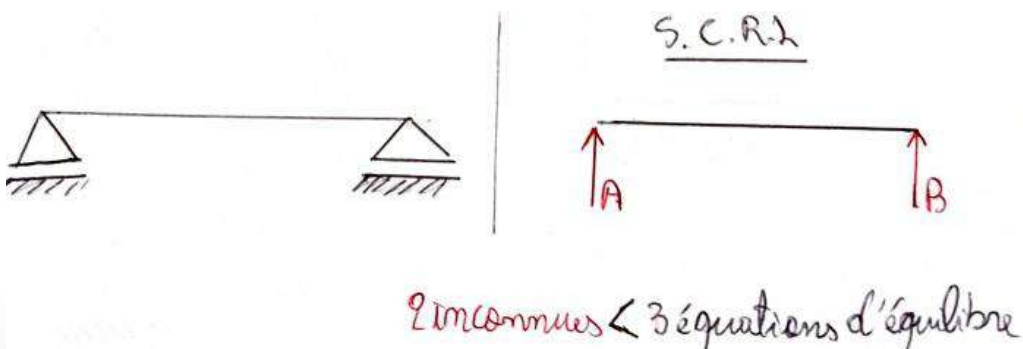 S.C.R.L
A B
2 inconnues < 3 équations d'équilibre